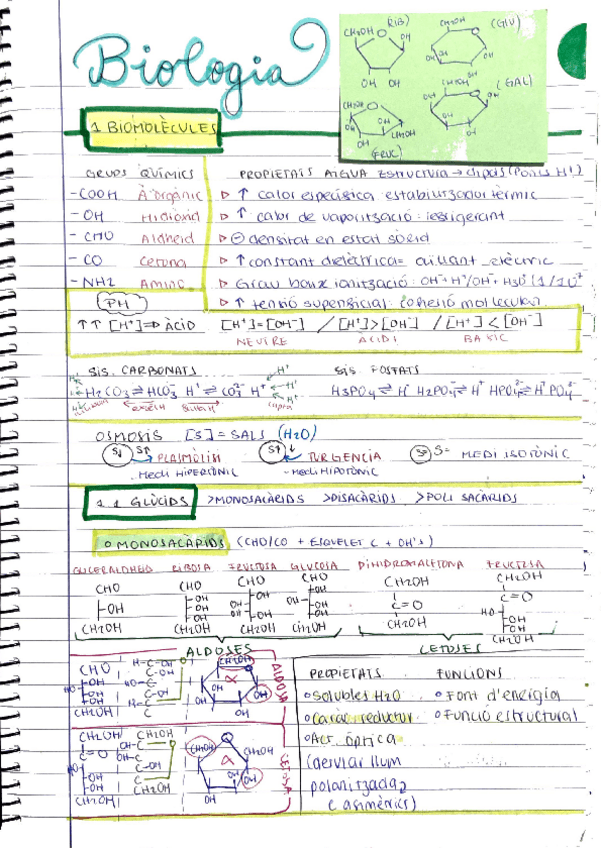 Biologia
(RIB)
(GLU)
(GAL)
(FRUC)
CH2OH
OH
1 BIOMOLÈCULES
GRUPS QUÍMICS
-COOH À.orgànic
-OH Hidroxid
-CHO Aldheid
-CO Cetona
-NH2 Amino
PROPIETATS AIGUA Estructura → dipols (Ponts H!)
▷ ↑ calor específica estabilitzador tèrmic
▷ ↑ calor de vaporització: refrigerant
▷ ⊖ densitat en estat sòlid
▷ ↑ constant dielèctrica = aïllant elèctric
▷ Grau baix ionització: OH⁻+H⁺/OH⁻+H3O⁺
▷ ↑ tensió superficial: cohesió molecular.
PH
↑↑ [H⁺] ⇒ ÀCID [H⁺]=[OH⁻] / [H⁺]>[OH⁻] / [H⁺]<[OH⁻]
NEUTRE ÀCID BÀSIC
SIS. CARBONATS SIS FOSFATS
H2CO3 ⇌ HCO3⁻ H⁺ ⇌ CO3²⁻ H⁺
H3PO4 ⇌ H⁺ H2PO4⁻ ⇌ H⁺ HPO4²⁻ ⇌ H⁺ PO4³⁻
OSMOSIS [S] = SALS (H2O)
S↓ S↑ PLASMÒLISI
-MEDI HIPERTÒNIC
S↑ ↓ TURGÈNCIA
-MEDI HIPOTÒNIC
S= S= MEDI ISOTÒNIC
1.1 GLÚCIDS >MONOSACÀRIDS >DISACÀRIDS >POLISACÀRIDS
o MONOSACÀRIDS (CHO/CO + ESQUELET C + OH's)
GLICERALDHEID RIBOSA FRUCTOSA GLUCOSA DIHIDROXIACETONA FRUCTOSA
CHO CHO CHO CHO CH2OH CH2OH
-OH C=O C=O
CH2OH CH2OH CH2OH CH2OH CH2OH CH2OH
ALDOSES CETOSES
CHO
CH2OH
α
ALDOSA
CH2OH
C=O
CH2OH
α
CETOSA
PROPIETATS
o Solubles H2O
o Caràc. reductor
o Act. òptica
(desviar llum
polaritzada
C asimèrics)
FUNCIONS
o Font d'energia
o Funció estructural